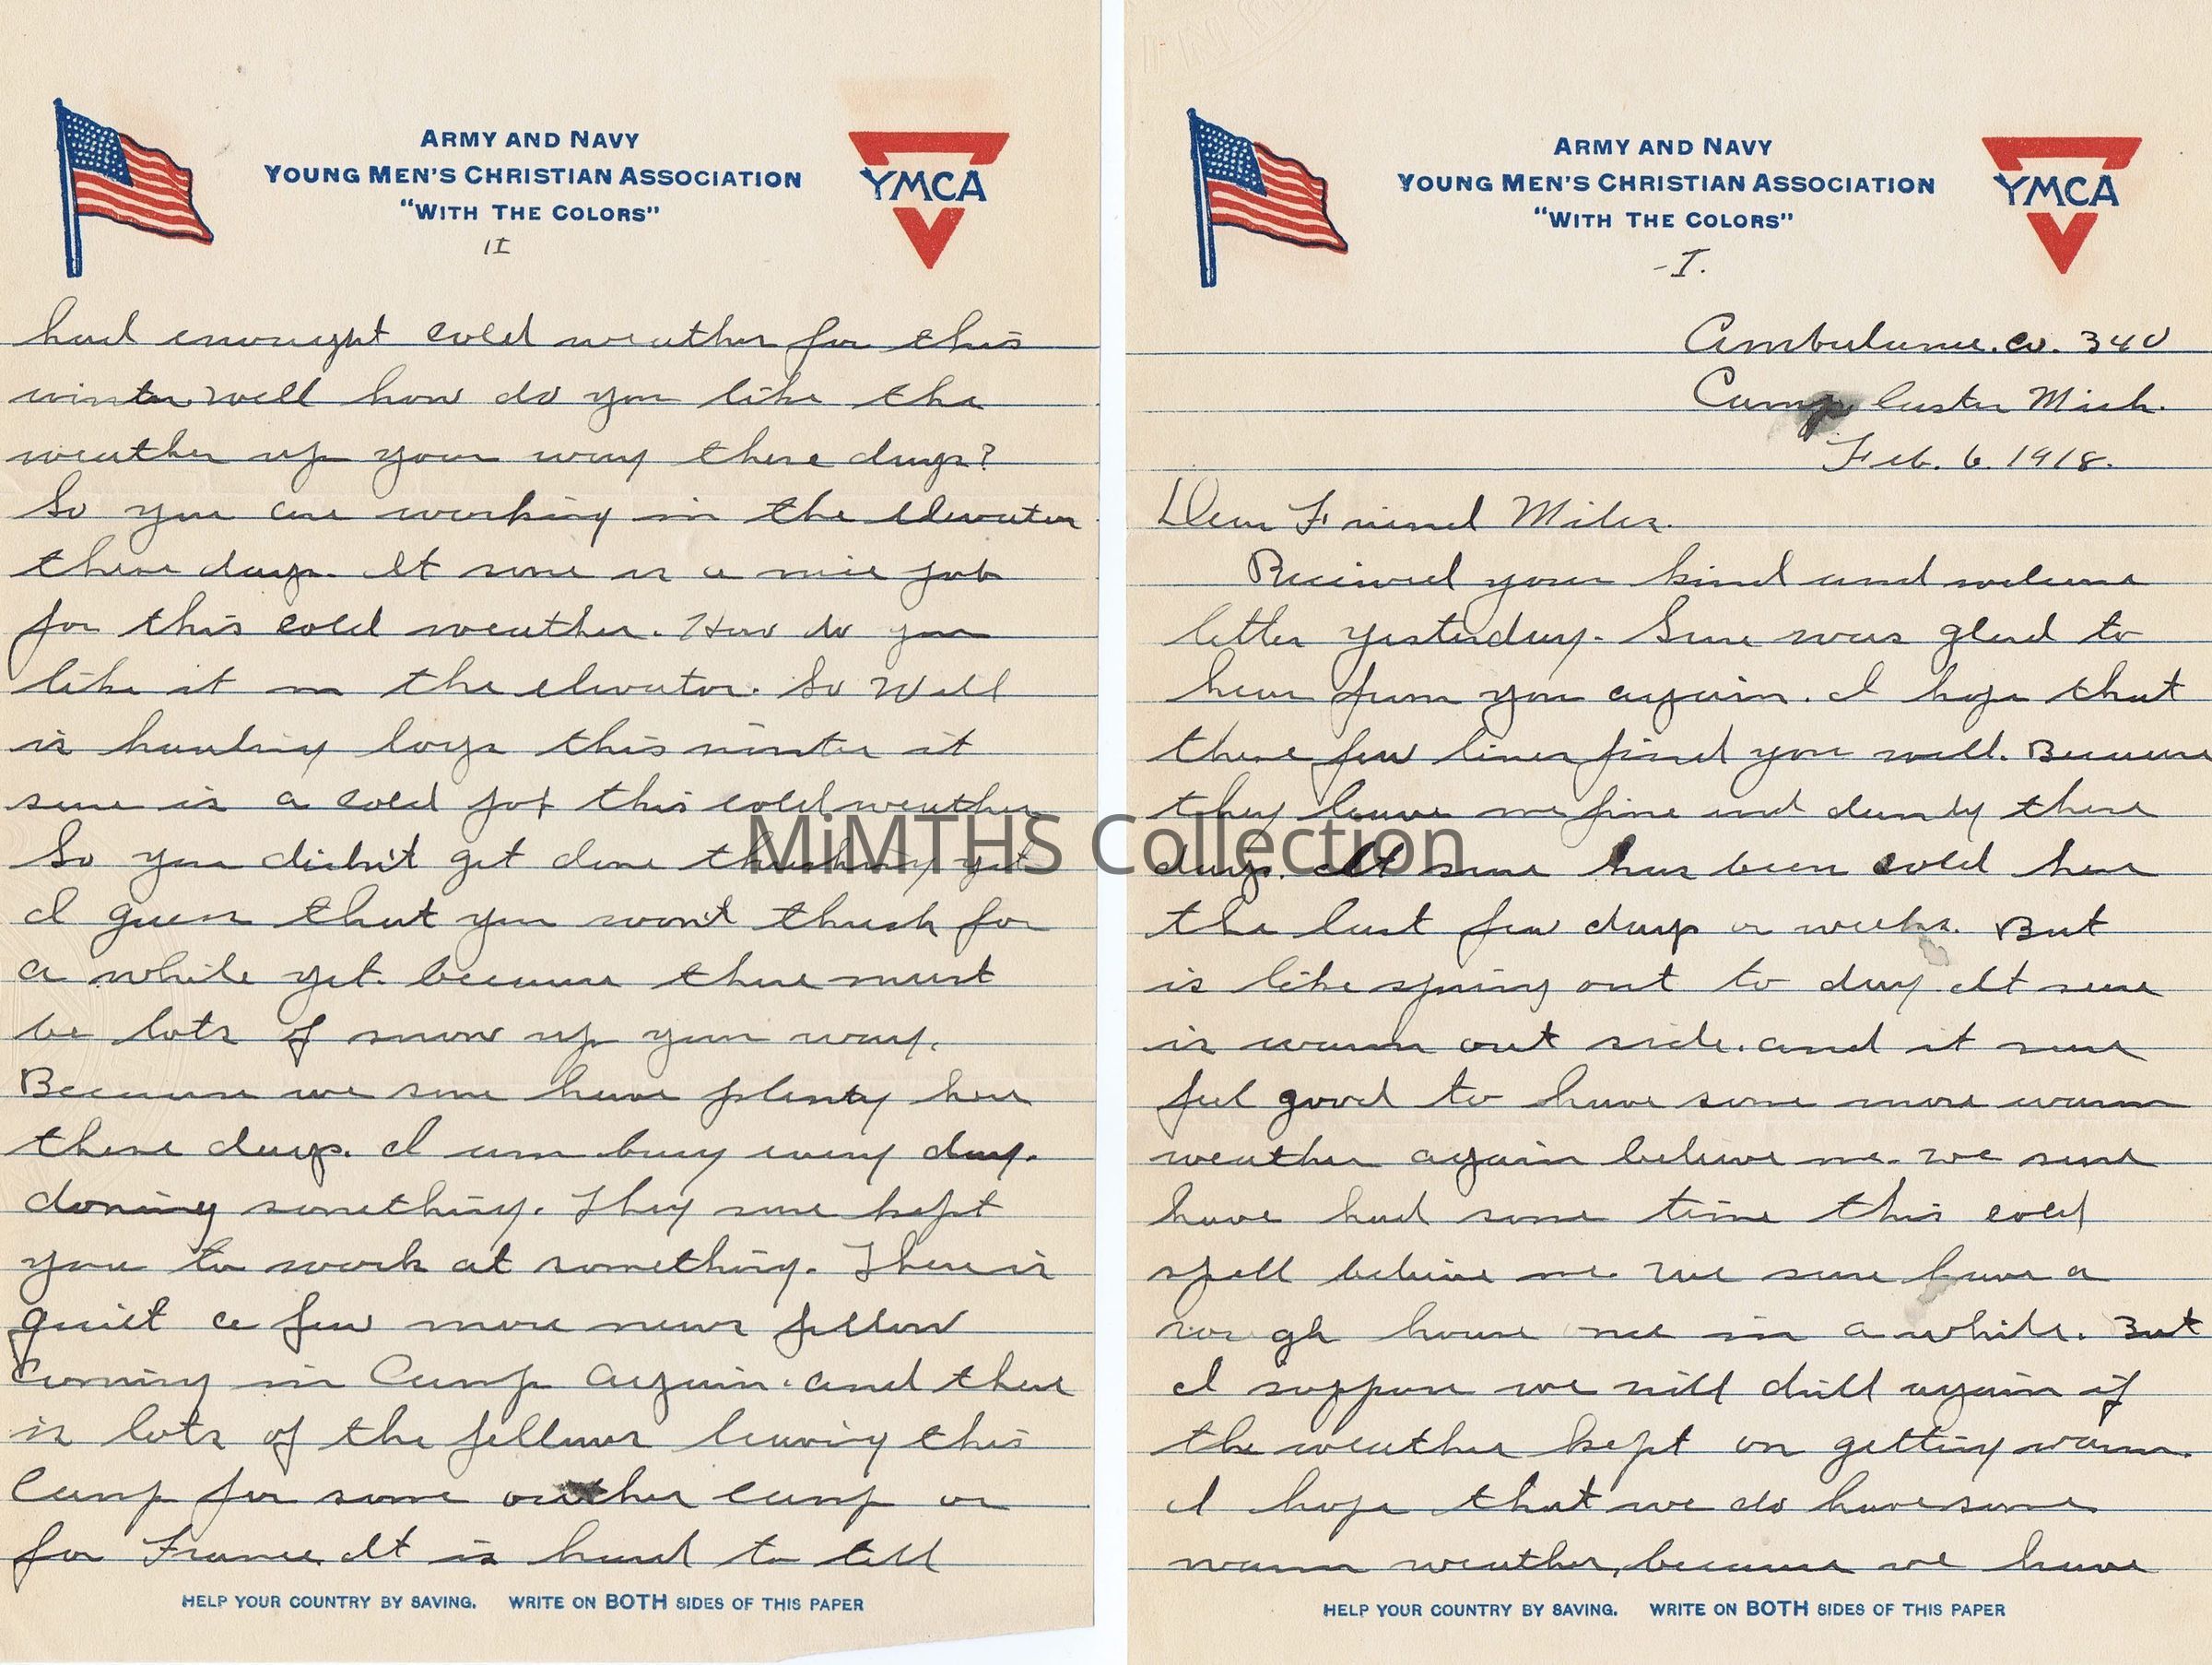 ARMY AND NAVY
YOUNG MEN'S CHRISTIAN ASSOCIATION
"WITH THE COLORS"
YMCA
-I.
Ambulance. co. 340
Camp Custer Mich.
Feb. 6. 1918.
Dear Friend Miles.
Received your kind and welcome
letter yesterday. Sure was glad to
hear from you again. I hope that
these few lines find you well. Because
they leave me fine and dandy these
days. It sure has been cold here
the last few days or weeks. But
is like spring out to day. It sure
is warm out side. and it sure
feel good to have some more warm
weather again believe me. we sure
have had some time this cold
spell believe me. we sure have a
rough house once in a while. But
I suppose we will drill again if
the weather kept on getting warm.
I hope that we do have some
warm weather, because we have
HELP YOUR COUNTRY BY SAVING. WRITE ON BOTH SIDES OF THIS PAPER
ARMY AND NAVY
YOUNG MEN'S CHRISTIAN ASSOCIATION
"WITH THE COLORS"
YMCA
II
had enought cold weather for this
winter. well how do you like the
weather up your way these days?
So you are working in the elevator
these days. It sure is a nice job
for this cold weather. How do you
like it in the elevator. So Will
is hauling logs this winter it
sure is a cold job this cold weather
So you didn't get done thrashing yet
I guess that you won't thrash for
a while yet. because there must
be lots of snow up your way.
Because we sure have plenty here
these days. I am busy every day.
doning something. They sure kept
you to work at something. There is
quiet a few more news fellow
coming in Camp again. and there
is lots of the fellows leaving this
Camp for some outher camp or
for France. It is hard to tell
HELP YOUR COUNTRY BY SAVING. WRITE ON BOTH SIDES OF THIS PAPER
MiMTHS Collection